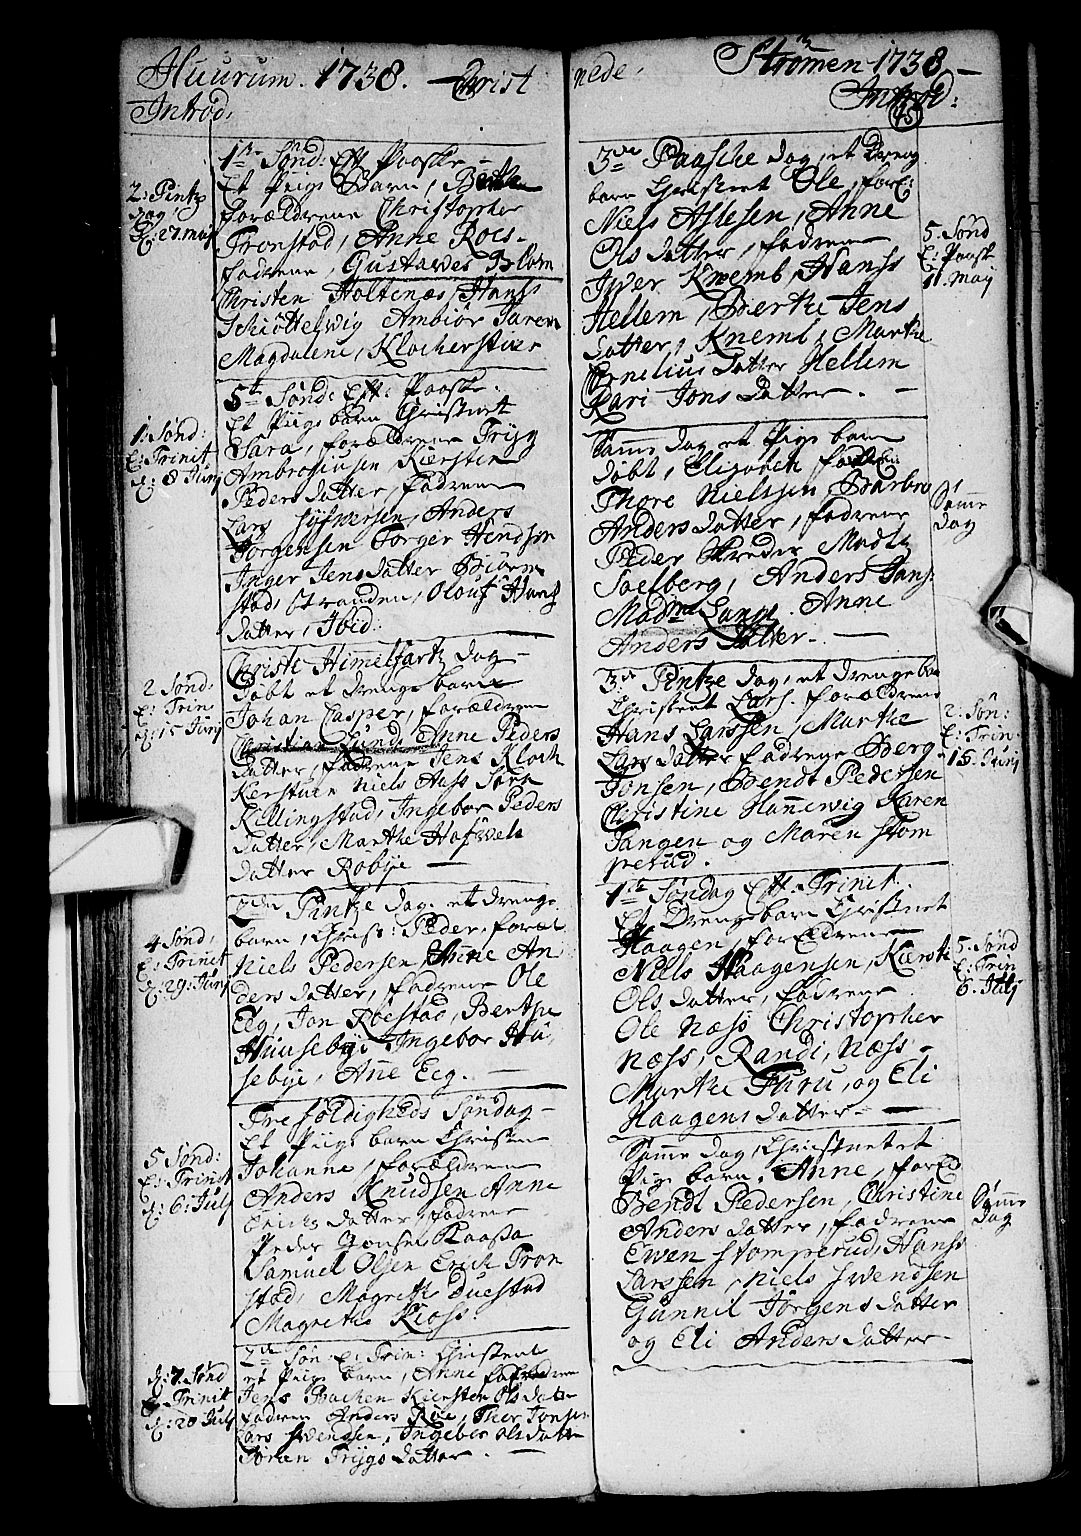 Huurum. 1738. Christ
Introd:
1te Sønd: Eft Paaske
Et Piige Barn, Berthe
forældrene Christopher
Tronstad, Anne Roes-
fadrene, Gustawes Blom
Christen Holtenæs, Hanss
Schiøttelwig Ambiør Saren
Magdalene, Klocherstuen
2: Pintz
dag
d: 27. maj
5te Sønd: Eft: Paaske.
Et Piige barn Christnet
Sara, forældrene Tryg
Ambrosiusen, Kiersten
Peders datter, fadrene
Lars Syfwersen, Anders
Jørgensen Torger Hendson
Inger Jens datter Biørn
stad, Stranden, Olouf Hans
datter, Ibid:
1. Sønd:
E: Trinit
d: 8 Junj
Christi Himelfartz dag
Døbt et drenge barn
Johan Casper, forældrene
Christian Lund, Anne Peders
datter, fadrene Jens Kloch
Kerstine Niels Aass Sara
Killingstad, Ingebor Peders
datter, Marthe Hafwels
datter Røbye
2 Sønd.
E: Trin
d: 15 Junj
2den Pintze dag. et drenge
barn, Christ: Peder, foræl
Niels Pedersen Anne An
ders datter, fadrene Ole
Eeg, Jon Røestad, Berthe
Huusebye Ingebor Hu
sebye, Anne Eeg.
4 Sønd,
E: Trinit
d: 29: Junj
Trefoldigheds Søndag
Et Piige barn Christne
Johanne, forældrene
Anders Knudsen Anne
Erichs datter, fadrene
Peder Jonsen Kaassa
Samuel Olsen Erich Tron
stad, Magrethe Duestad
Magrethe Kioss:
5 Sønd:
E: Trinit
d: 6: Julj
2de Søn E: Trin: Christnet
et Piige barn, Anne forældrene
Jens Bachen Kiersten Ols datter
fadrene Anders Røe, Thor Jonsen
Lars Swendsen, Ingebor Ols datter
Joran Trygs datter
d: 7. Sønd
E: Trinit
d: 20 Julj
nede. Strømen 1738
Introd:
45
3de Paasche dag, et Dreng
barn Christnet Ole, foræl:
Niels Aslesen, Anne
Ols datter, fadrene
Iwer Knemb, Hanss
Hellem, Berthe Jens
datter, Knemb, Marthe
Cornelius datter Hellem
Kari Jons datter.
5. Sønd
E: Paask
11. maj
Samme dag et Pige barn
døbt, Elizabeth foræl:
Thore Nielssen, Barbro
Anders datter, fadrene
Peder Skreder Madtz
Soelberg, Anders Hans:
Madme Lange. Anne
Anders Datter.
Samme
dag
3de Pintze dag, et drengebarn
Christnet Lars. forældrene
Hans Larssen, Marthe
Lars datter fadrene Berg
Jonsen, Bendt Pedersen
Christine Hannewig Karen
Tangen og Maren Stom
perud.
2: Søn:
E: Trin
15. Junj
1te Søndag Eft: Trinit.
Et Drenge barn Christnet
Haagen, forældrene
Niels Haagensen, Kiersti
Ols datter, fadrene
Ole Næss Christopher
Næss, Randi, Næss-
Marthe Thru, og Eli
Haagens datter
5. Sønd
E: Trin
6. Julj
Samme dag, Christnet et
Pige barn, Anne, foræl
Bendt Pedersen, Christine
Anders datter, fadrene
Ewen Stomperud, Hanss
Larssen, Niels Swendsen
Gunnil Jørgens datter
og Eli Anders datter
Samme
dag